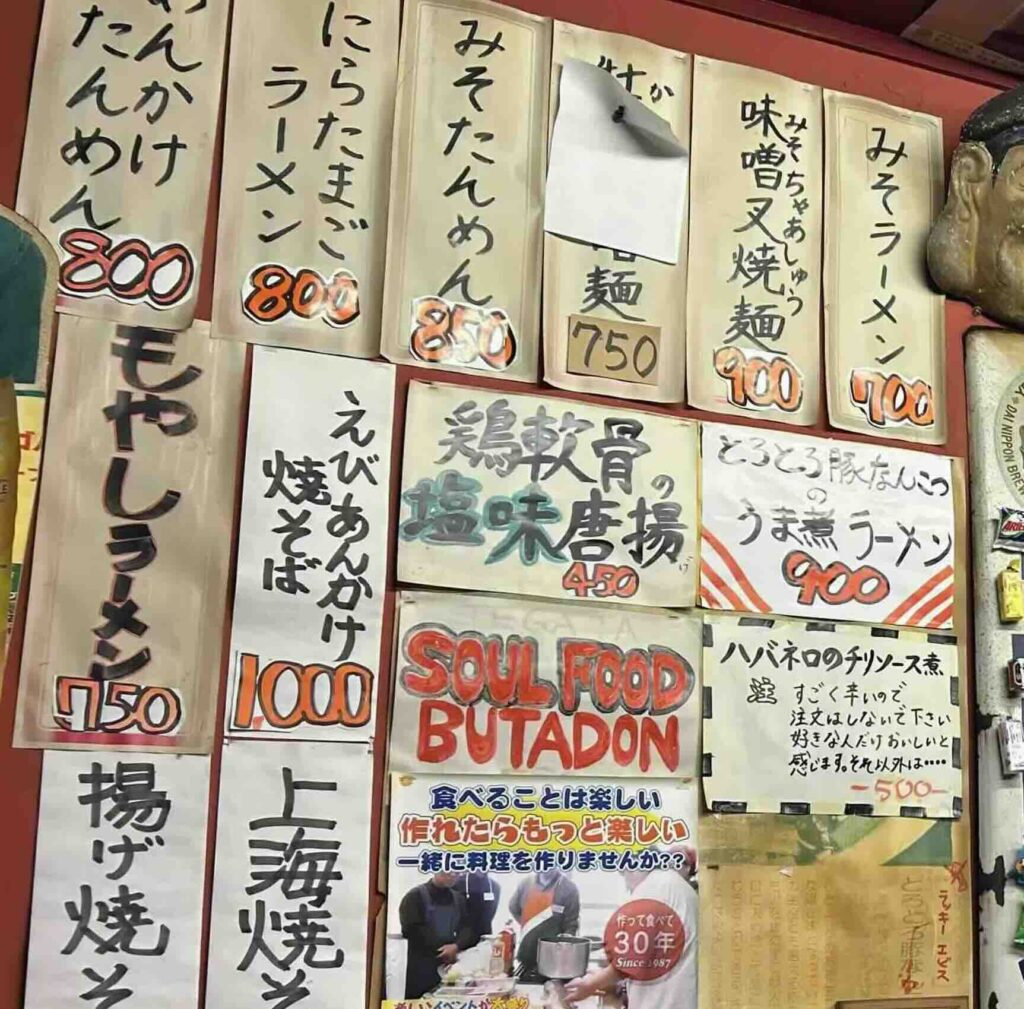 みそラーメン
700
味噌叉焼麺
みそちゃあしゅう
900
麺
750
みそたんめん
850
にらたまご
ラーメン
800
んかけ
たんめん
800
もやしラーメン
750
えびあんかけ
焼そば
1000
鶏軟骨の
塩味唐揚げ
450
とろとろ豚なんこつ
の
うま煮ラーメン
900
SOUL FOOD
BUTADON
ハバネロのチリソース煮
注 すごく辛いので
注文はしないで下さい
好きな人だけおいしいと
感じます。それ以外は‥‥
-500-
揚げ焼そ
上海焼そ
食べることは楽しい
作れたらもっと楽しい
一緒に料理を作りませんか??
作って食べて
30年
Since 1987
楽しいイベントが
ラッキー エビス
DAI NIPPON BREW